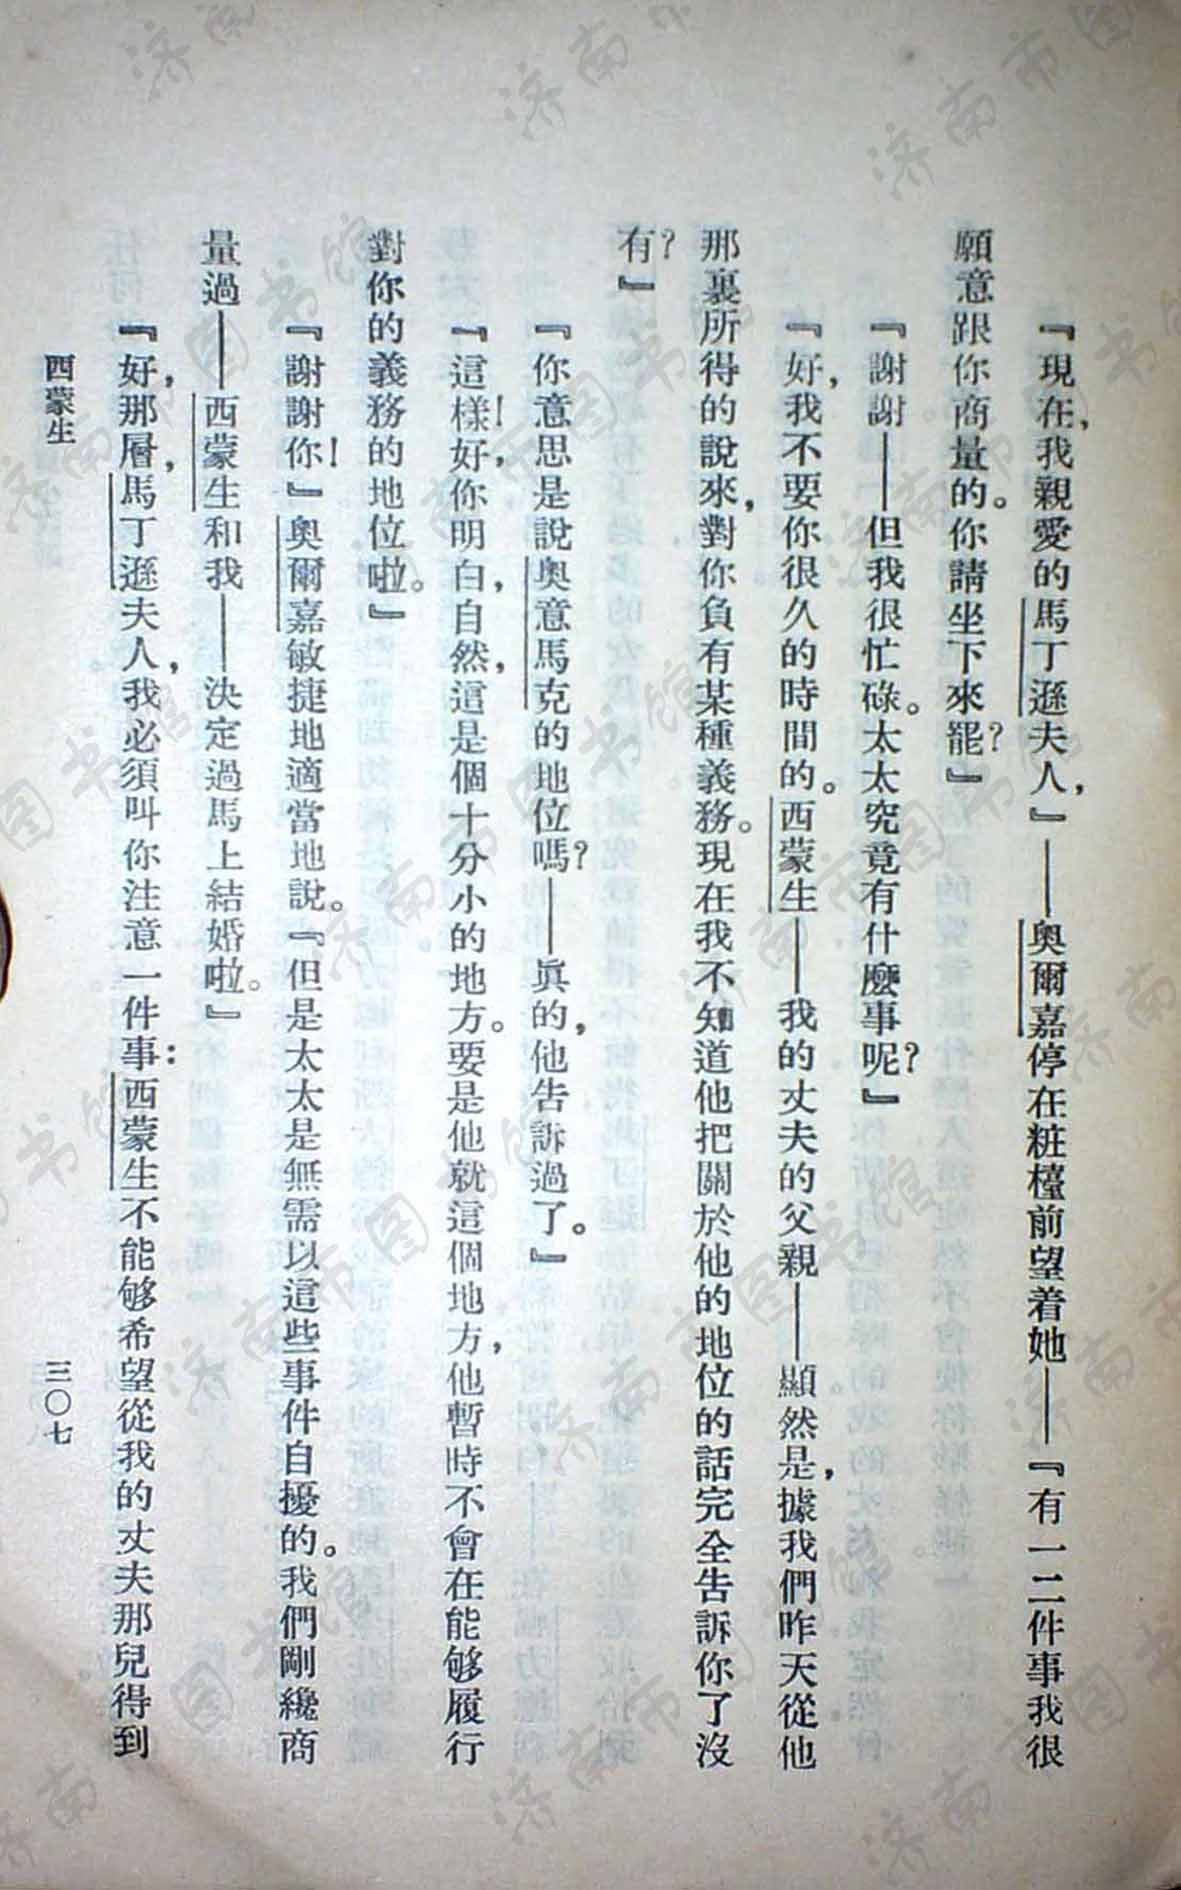 『現在，我親愛的馬丁遜夫人，』——奧爾嘉停在粧檯前望着她——『有一二件事我很
願意跟你商量的。你請坐下來罷？』
『謝謝——但我很忙碌。太太究竟有什麼事呢？』
『好，我不要你很久的時間的。西蒙生——我的丈夫的父親——顯然是，據我們昨天從他
那裏所得的說來，對你負有某種義務。現在我不知道他把關於他的地位的話完全告訴你了沒
有？』
『你意思是說奧意馬克的地位嗎？——眞的，他告訴過了。』
『這樣！好，你明白，自然，這是個十分小的地方。要是他就這個地方，他暫時不會在能够履行
對你的義務的地位啦。』
『謝謝你！』奧爾嘉敏捷地適當地說。『但是太太是無需以這些事件自擾的。我們剛纔商
量過——西蒙生和我——決定過馬上結婚啦。』
『好，那層，馬丁遜夫人，我必須叫你注意一件事：西蒙生不能够希望從我的丈夫那兒得到
西蒙生
三〇七
济南市图书馆